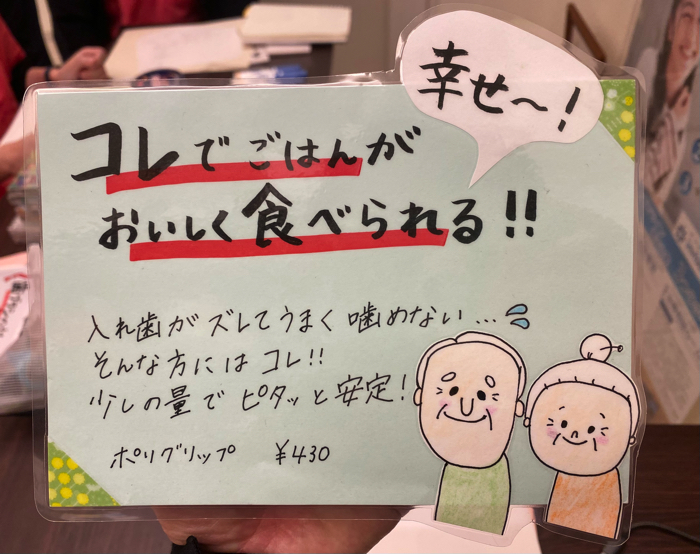 幸せ〜!
コレでごはんが
おいしく食べられる!!
入れ歯がズレてうまく噛めない...
そんな方にはコレ!!
少しの量でピタッと安定!
ポリグリップ ¥430